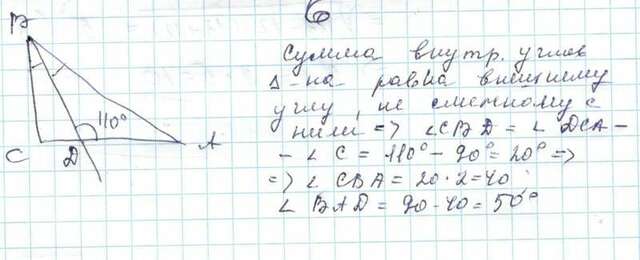 6
B
110°
C D A
Сумма внутр. углов
Δ-на равна внешнему
углу, не смежному с
ними => ∠CBD = ∠DCA -
- ∠C = 110° - 90° = 20° =>
=> ∠CBA = 20·2 = 40
∠BAD = 90 - 40 = 50°